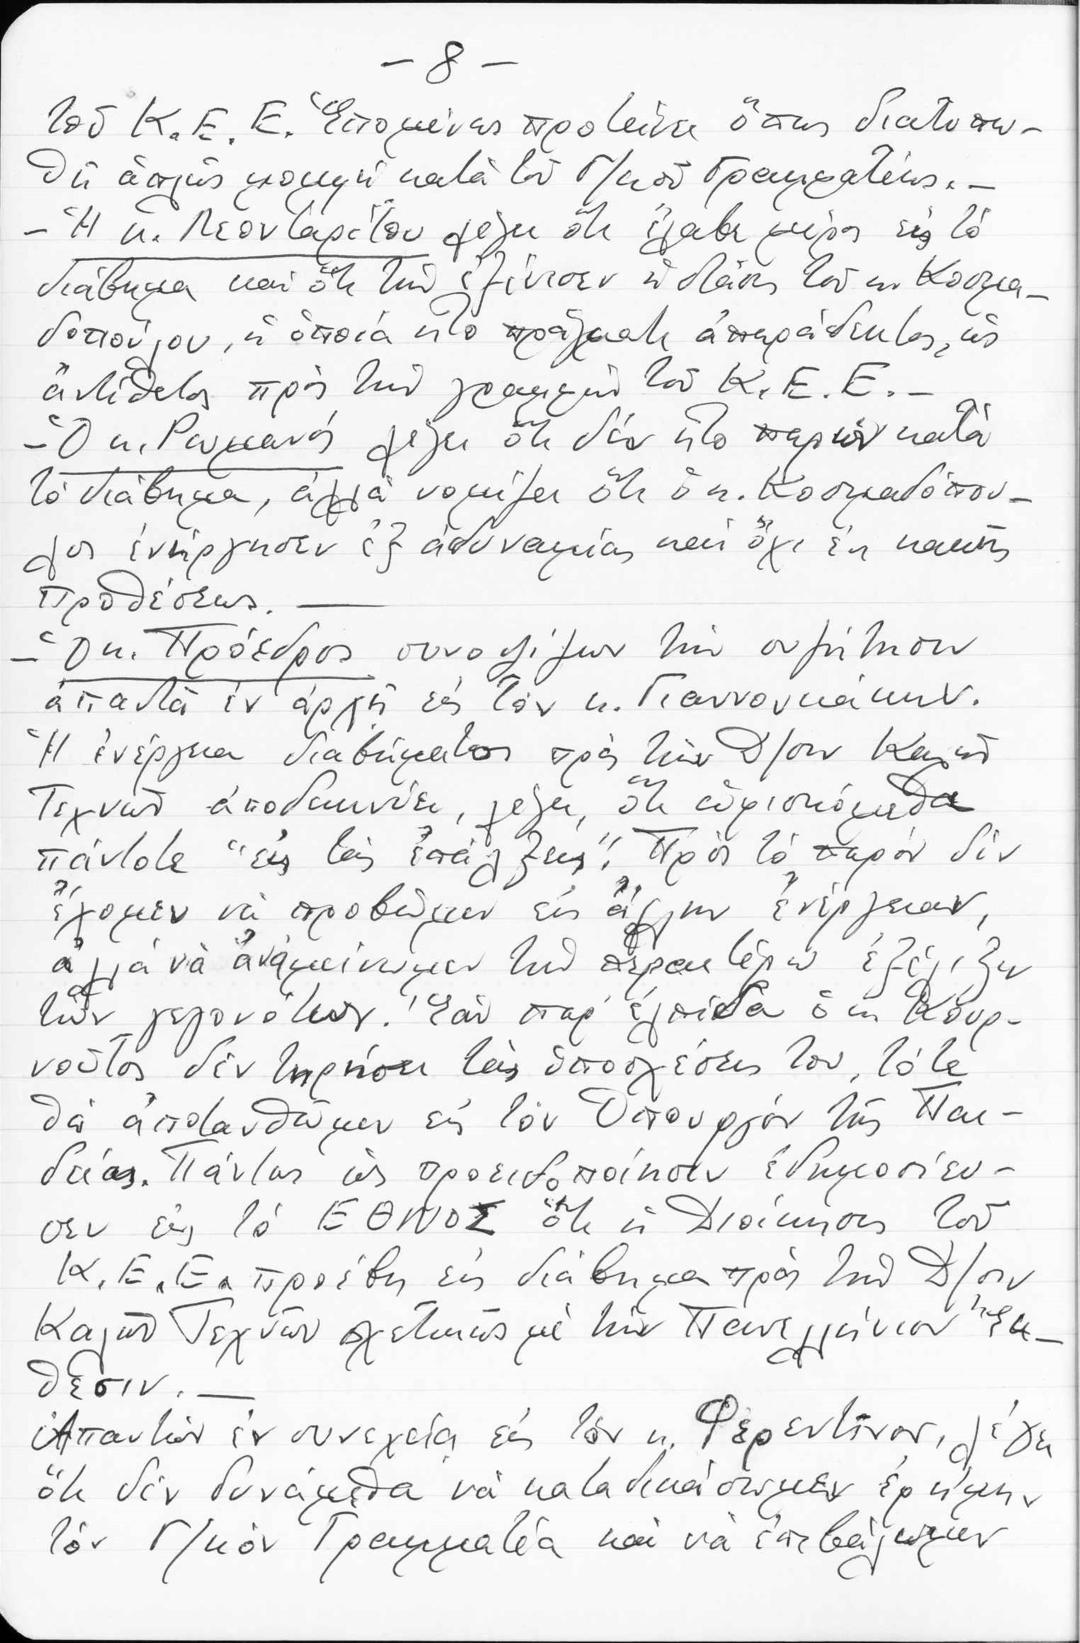 - 8 -
τοῦ Κ.Ε.Ε. Ἑπομένως προτείνει ὅπως διατυπω-
θῇ ἁπλῶς μομφή κατὰ τοῦ Γ/κοῦ Γραμματέως.-
- Ἡ κ. Λεονταρίτου λέγει ὅτι ἔλαβε μέρος εἰς τὸ
διάβημα καὶ ὅτι τὴν ἐξένισεν ἡ στάσις τοῦ κ. Κοσμα-
δοπούλου, ἡ ὁποία ἦτο πράγματι ἀπαράδεκτος, ὡς
ἀντίθετος πρὸς τὴν γραμμὴν τοῦ Κ.Ε.Ε.-
- Ὁ κ. Ρωμανός λέγει ὅτι δέν ἦτο παρὼν κατὰ
τὸ διάβημα, ἀλλὰ νομίζει ὅτι ὁ κ. Κοσμαδόπου-
λος ἐνήργησεν ἐξ ἀδυναμίας καὶ ὄχι ἐκ κακῆς
προθέσεως. —
- Ὁ κ. Πρόεδρος συνοψίζων τὴν συζήτησιν
ἀπαντᾶ ἐν ἀρχῇ εἰς τὸν κ. Γιαννουκάκην.
Ἡ ἐνέργεια διαβήματος πρὸς τὴν Δ/σιν Καλῶν
Τεχνῶν ἀποδεικνύει, λέγει, ὅτι εὑρισκόμεθα
πάντοτε "εἰς τὰς ἐπάλξεις". Πρὸς τὸ παρόν δέν
ἔχομεν νὰ προβῶμεν εἰς ἄλλην ἐνέργειαν,
ἀλλά νὰ ἀναμείνωμεν τὴν περαιτέρω ἐξέλιξιν
τῶν γεγονότων. Ἐάν παρ' ἐλπίδα ὁ κ. Κουρ-
νοῦτος δέν τηρήσει τὰς ὑποσχέσεις του, τότε
θὰ ἀποτανθῶμεν εἰς τὸν Ὑπουργόν τῆς Παι-
δείας. Πάντως ὡς προειδοποίησιν ἐδημοσίευ-
σεν εἰς τὸ ΕΘΝΟΣ ὅτι ἡ Διοίκησις τοῦ
Κ.Ε.Ε. προέβη εἰς διάβημα πρὸς τὴν Δ/σιν
Καλῶν Τεχνῶν σχετικῶς μὲ τὴν Πανελλήνιον Ἔκ-
θεσιν. —
Ἀπαντῶν ἐν συνεχείᾳ εἰς τὸν κ. Φερεντῖνον, λέγει
ὅτι δέν δυνάμεθα νὰ καταδικάσωμεν ἐρήμην
τὸν Γ/κὸν Γραμματέα καὶ νὰ ἐπιβάλωμεν